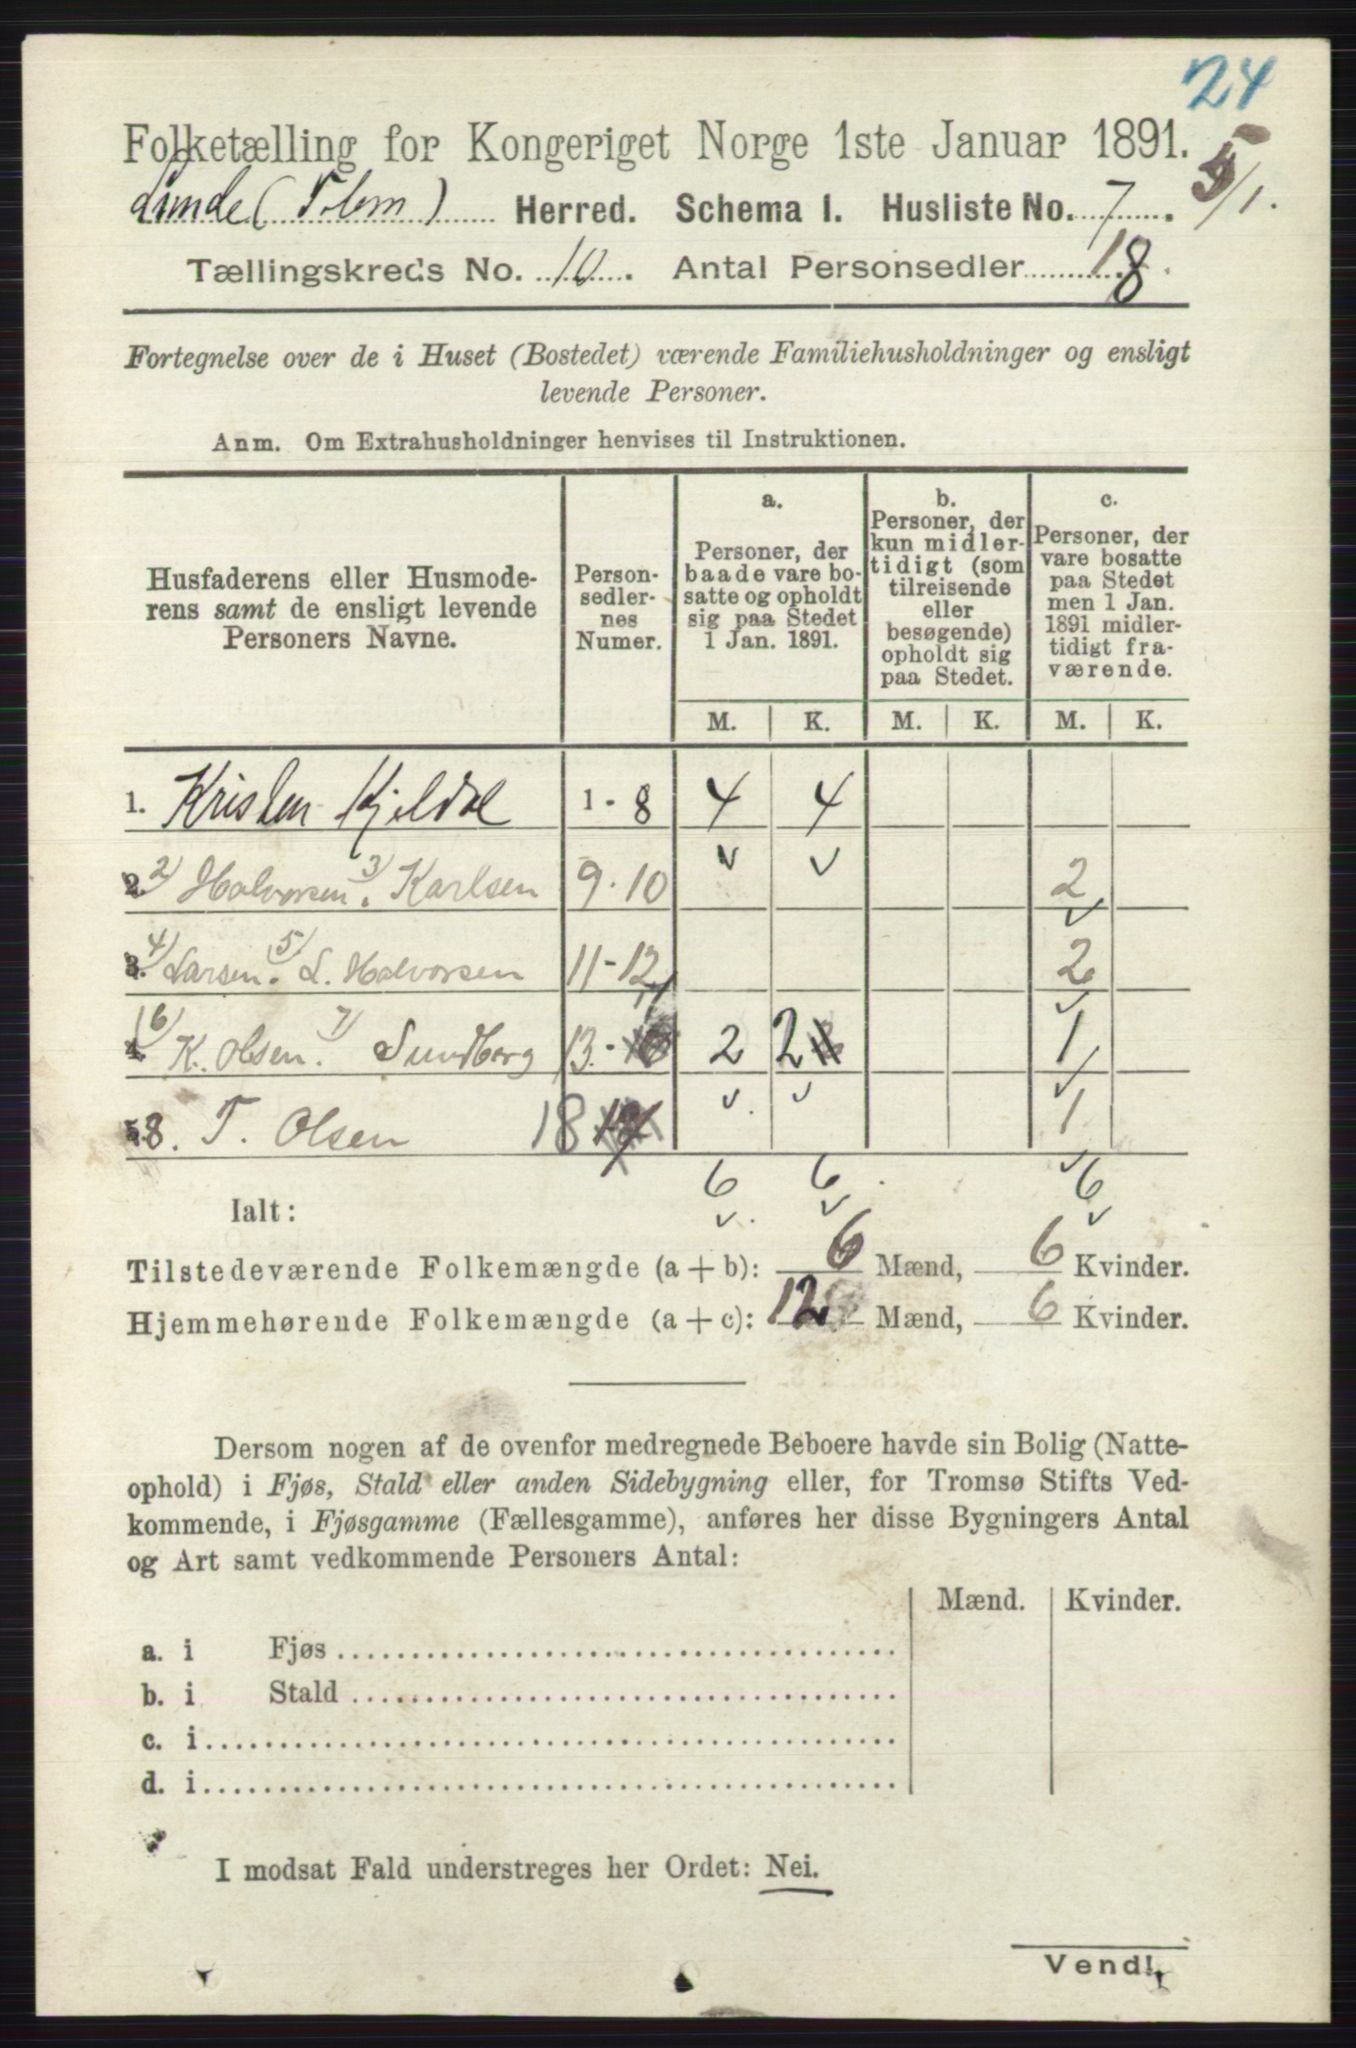 24
Folketælling for Kongeriget Norge 1ste Januar 1891.
5/1.
Lunde (Telem) Herred. Schema I. Husliste No. 7.
Tællingskreds No. 10. Antal Personsedler 18.
Fortegnelse over de i Huset (Bostedet) værende Familiehusholdninger og ensligt
levende Personer.
Anm. Om Extrahusholdninger henvises til Instruktionen.
Husfaderens eller Husmode-
rens samt de ensligt levende
Personers Navne.
Person-
sedler-
nes
Numer.
a.
Personer, der
baade vare bo-
satte og opholdt
sig paa Stedet
1 Jan. 1891.
b.
Personer, der
kun midler-
tidigt (som
tilreisende
eller
besøgende)
opholdt sig
paa Stedet.
c.
Personer, der
vare bosatte
paa Stedet
men 1 Jan.
1891 midler-
tidigt fra-
værende.
M. K. M. K. M. K.
1. Kristen Kjeldal 1 - 8 4 4
2. 2) Halvorsen. 3) Karlsen 9 - 10 2
3. 4) Larsen. 5) L. Halvorsen 11 - 12 2
4. 6) K. Olsen. 7) Sundberg 13 - 17 2 2 1
5. 8. T. Olsen 18 1
Ialt: 6 6 6
Tilstedeværende Folkemængde (a + b): 6 Mænd, 6 Kvinder.
Hjemmehørende Folkemængde (a + c): 12 Mænd, 6 Kvinder.
Dersom nogen af de ovenfor medregnede Beboere havde sin Bolig (Natte-
ophold) i Fjøs, Stald eller anden Sidebygning eller, for Tromsø Stifts Ved-
kommende, i Fjøsgamme (Fællesgamme), anføres her disse Bygningers Antal
og Art samt vedkommende Personers Antal:
Mænd. Kvinder.
a. i Fjøs
b. i Stald
c. i
d. i
I modsat Fald understreges her Ordet: Nei.
Vend!